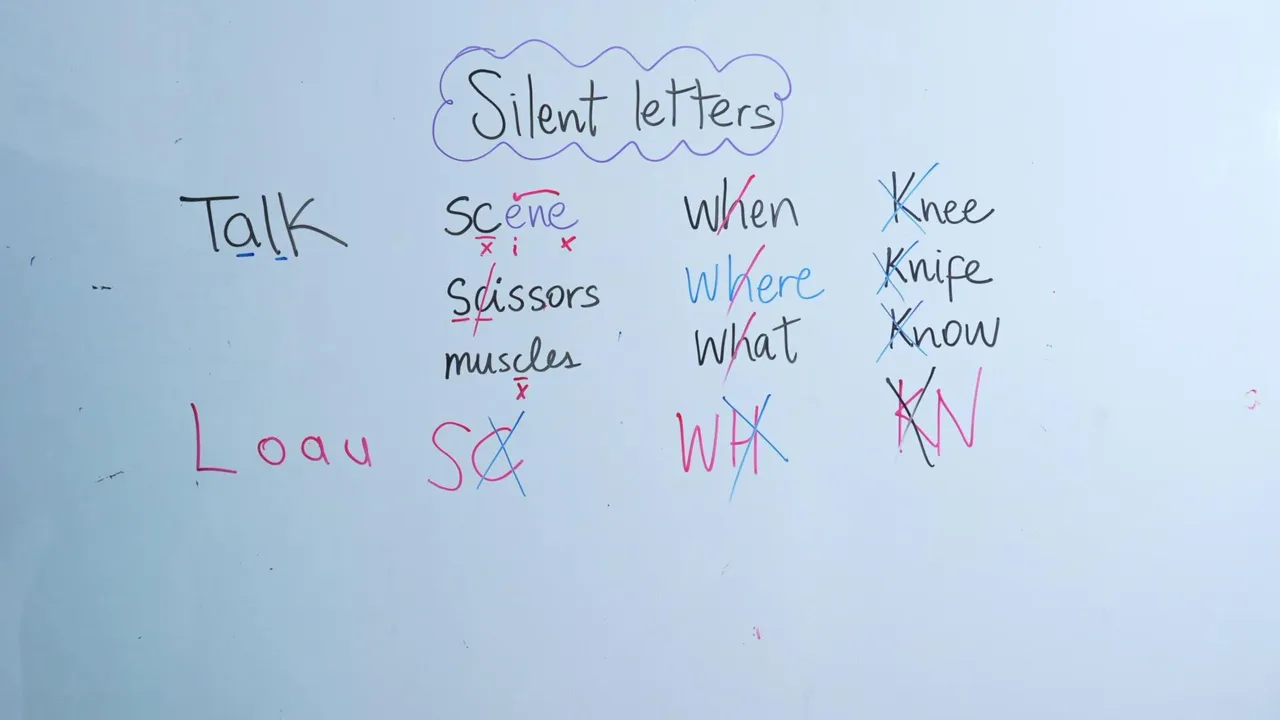 Silent letters
Talk
scene
x i x
Scissors
muscles
x
when
where
what
Knee
Knife
Know
L o a u
SC
WH
KN